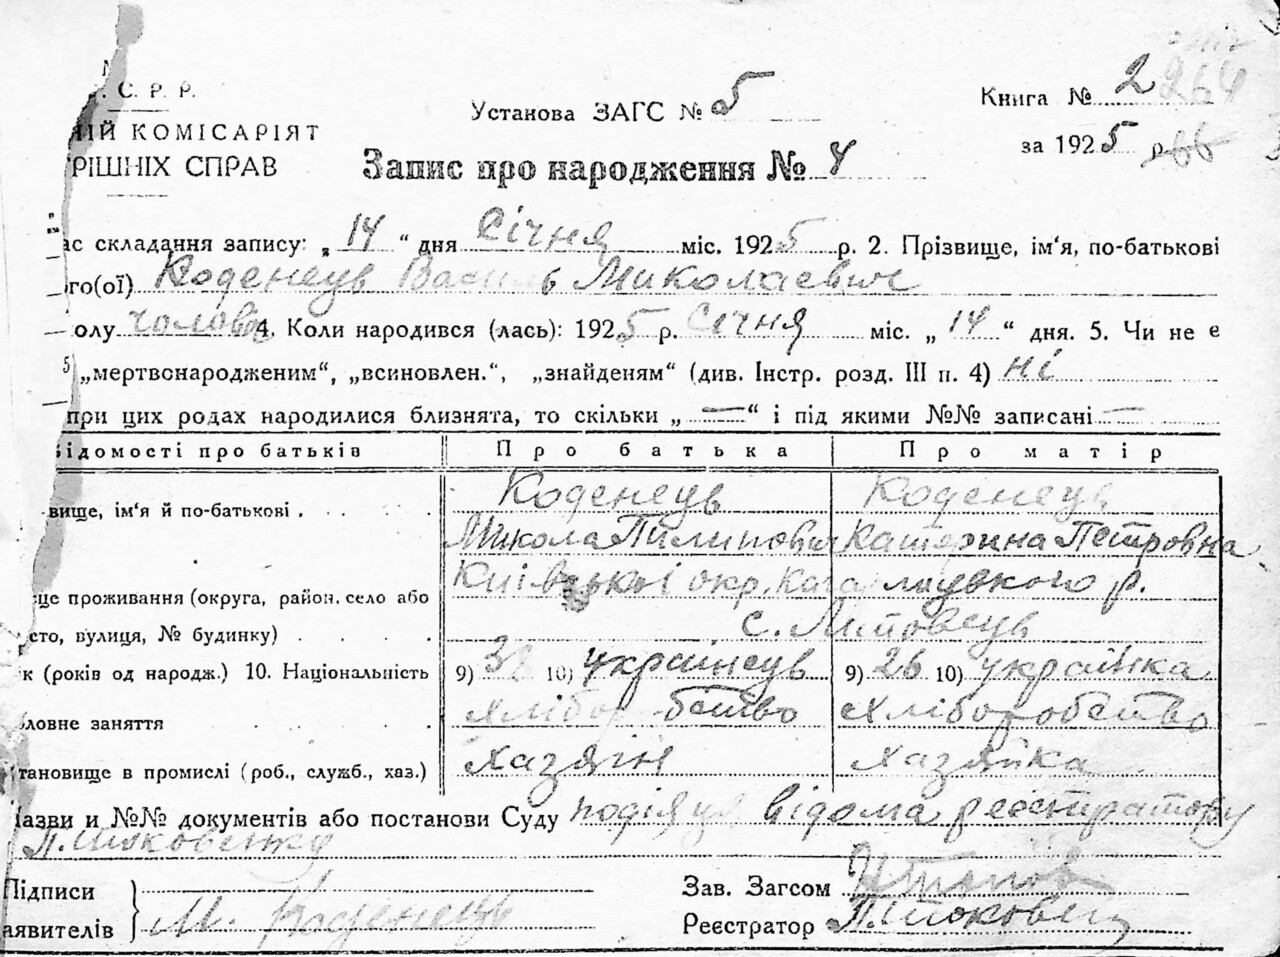 . С. Р. Р.
Установа ЗАГС № 5
Книга № 2 264
ИЙ КОМІСАРІЯТ
за 1925 р.
РІШНІХ СПРАВ
Запис про народження № 4
ас складання запису: „14“ дня Січня міс. 1925 р. 2. Прізвище, ім'я, по-батькові
го(ої) Коденець Василь Миколаевич
олу чолов 4. Коли народився (лась): 1925 р. Січня міс. „14“ дня. 5. Чи не є
5 „мертвонародженим“, „всиновлен.“, „знайденям“ (див. Інстр. розд. III п. 4) ні
при цих родах народилися близнята, то скільки „—“ і під якими №№ записані —
ідомості про батьків Про батька Про матір
вище, ім'я й по-батькові . . . . . Коденець Коденець
Микола Пилипович Катерина Петровна
це проживання (округа, район, село або Київської окр. Кагарлицького р.
сто, вулиця, № будинку) . . . . с. Липовець
к (років од народж.) 10. Національність 9) 32 10) українець 9) 26 10) українка
ловне заняття . . . . хліборобство хліборобство
тановище в промислі (роб., служб., хаз.) хазяїн хазяйка
Назви и №№ документів або постанови Суду подія ця відома реєстратору
П. Шаковенку
Підписи
Зав. Загсом
аявителів } М. Коденець
Реєстратор